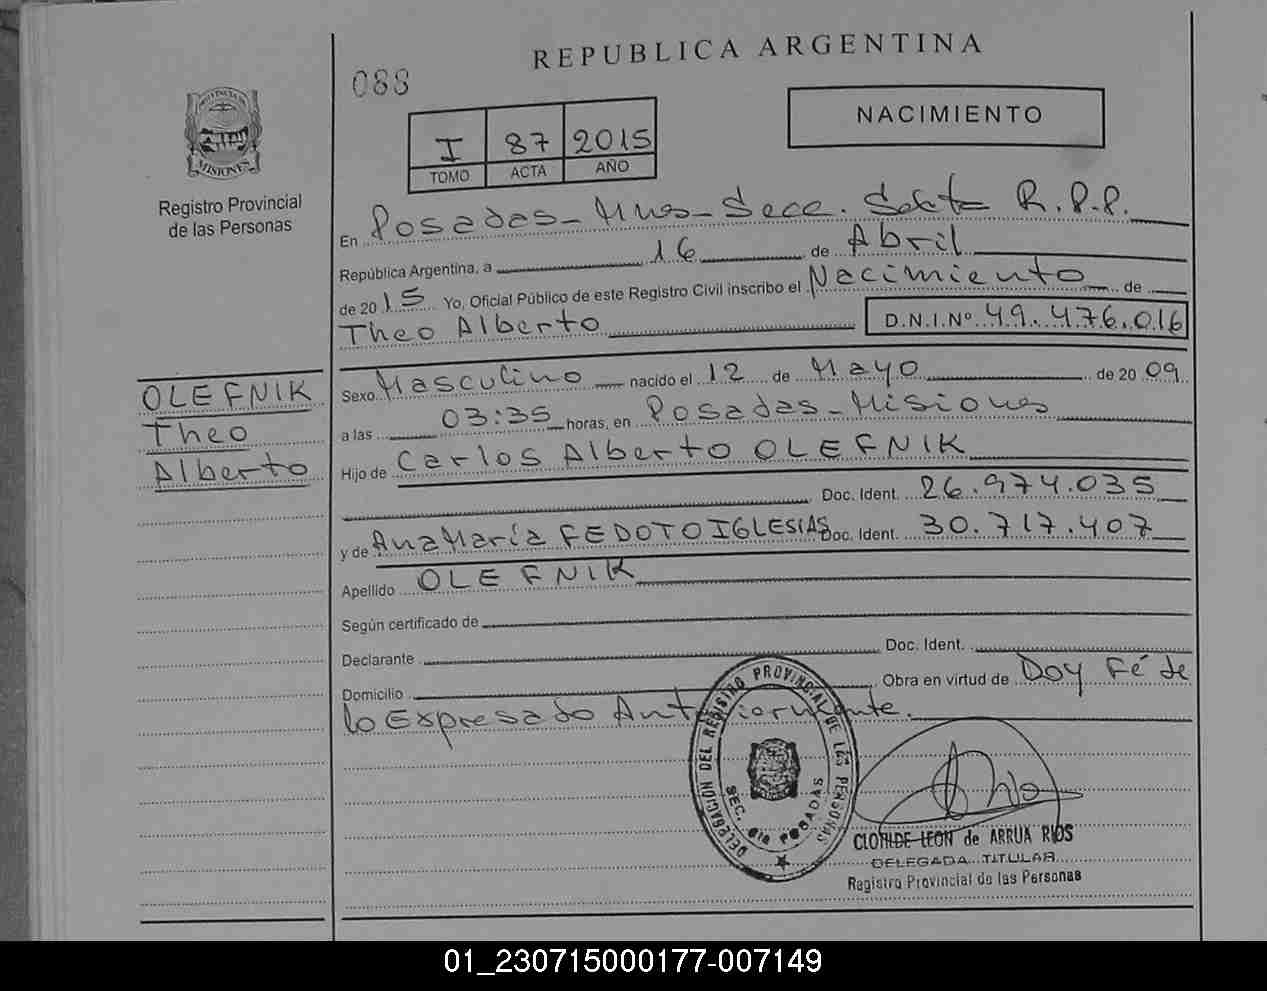 REPUBLICA ARGENTINA
088
NACIMIENTO
I 87 2015
TOMO ACTA AÑO
PROVINCIA DE
MISIONES
Registro Provincial
de las Personas
En Posadas - Mnes - Secc. Sexta R.P.P.
República Argentina, a 16 de Abril
de 2015 Yo, Oficial Público de este Registro Civil inscribo el Nacimiento de
Theo Alberto D.N.I.Nº 49.476.016
Sexo Masculino nacido el 12 de Mayo de 2009
a las 03:35 horas, en Posadas - Misiones
Hijo de Carlos Alberto OLEFNIK
Doc. Ident. 26.974.035
y de Ana María FEDOTO IGLESIAS Doc. Ident. 30.717.407
Apellido OLEFNIK
Según certificado de
Declarante Doc. Ident.
Domicilio Obra en virtud de Doy Fé de
lo Expresado Anteriormente.
OLEFNIK
Theo
Alberto
DELEGACIÓN DEL REGISTRO PROVINCIAL DE LAS PERSONAS
SEC. 6ta POSADAS
CLOTILDE LEON de ARRUA RIOS
DELEGADA TITULAR
Registro Provincial de las Personas
01_230715000177-007149